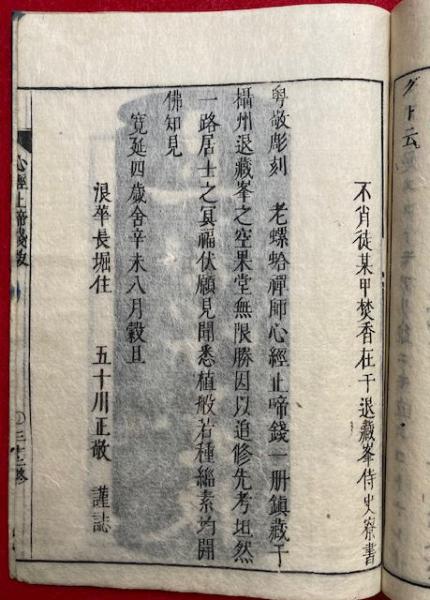 グト云
不肖徒某甲焚香在于退藏峯侍史寮書
粤敬彫刻　老螺蛤禪師心經止啼錢一册鎮藏于
攝州退藏峯之空果堂無限勝因以追修先考坦然
一路居士之冥福伏願見聞悉植般若種緇素均開
佛知見
寛延四歳舍辛未八月穀旦
浪華長堀住　五十川正敬　謹誌
心經止啼錢